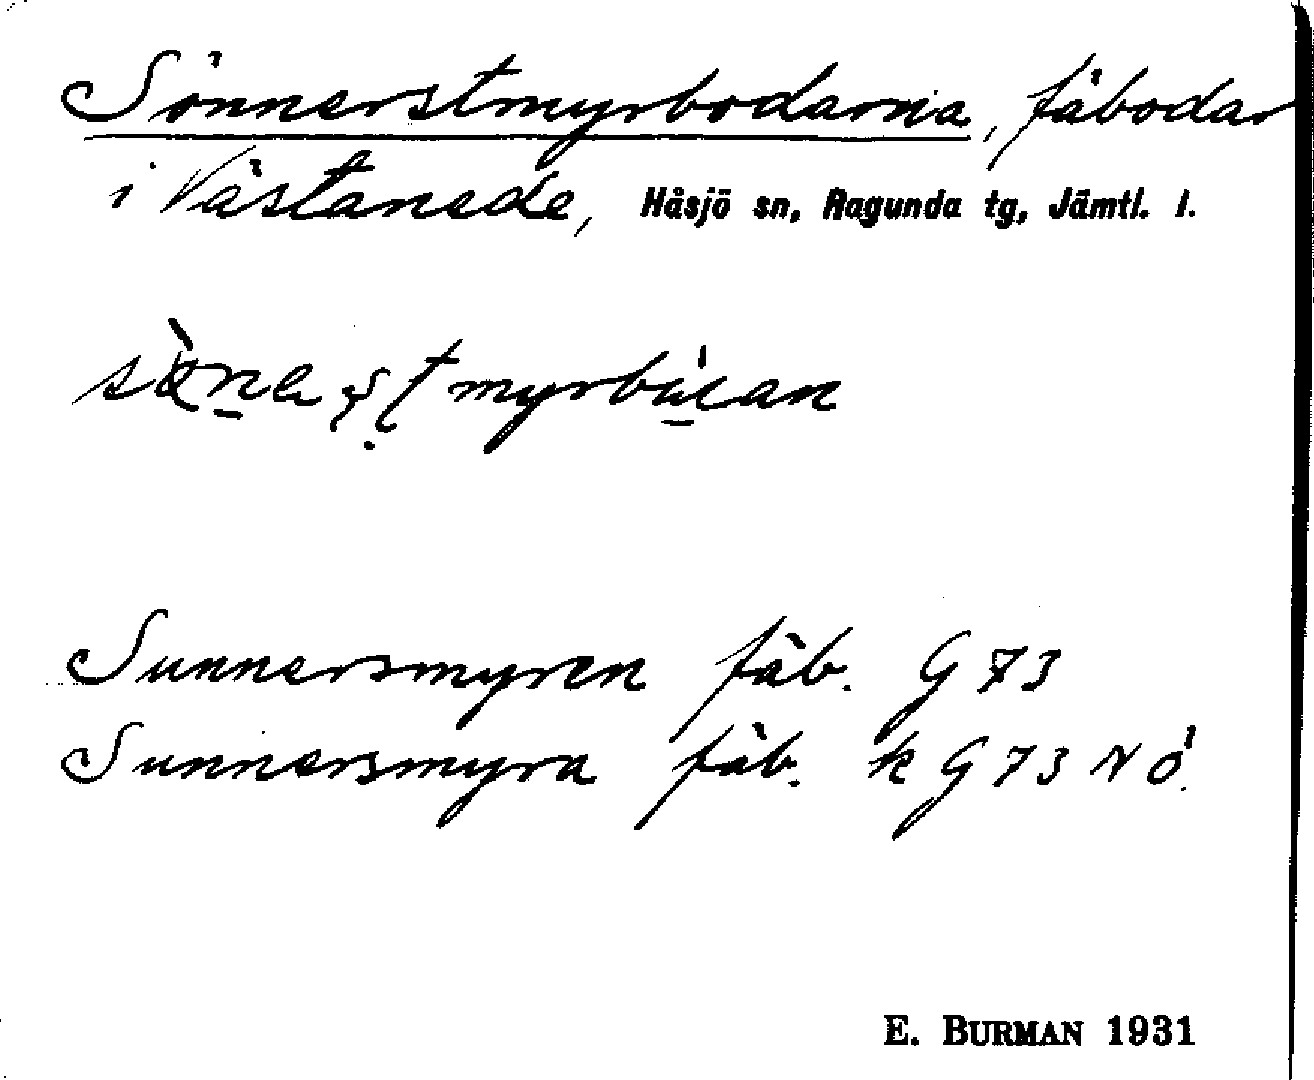 Sönnerstmyrbodarna, fäbodar
i Västanede, Håsjö sn, Ragunda tg, Jämtl. l.
Sunnersmyren fäb. G 73
Sunnersmyra fäb. k G 73 NÖ.
E. BURMAN 1931